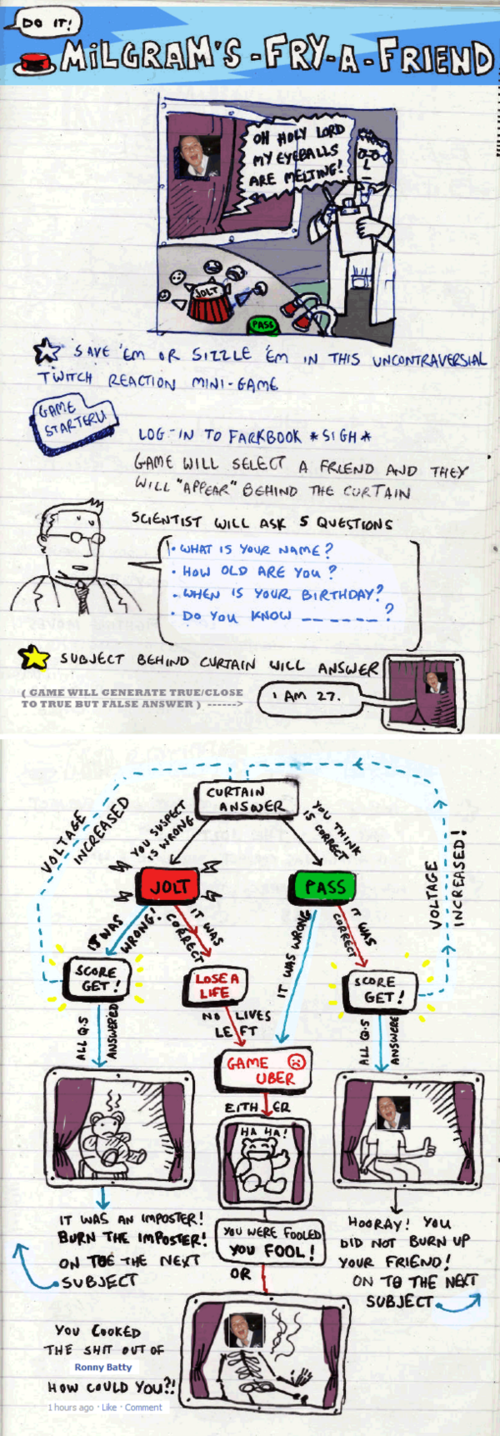 DO IT!
MILGRAM'S-FRY-A-FRIEND
OH HOLY LORD
MY EYEBALLS
ARE MELTING!
JOLT
PASS
SAVE 'EM OR SIZZLE 'EM IN THIS UNCONTRAVERSIAL
TWITCH REACTION MINI-GAME
GAME
STARTERU
LOG-IN TO FARKBOOK *SIGH*
GAME WILL SELECT A FRIEND AND THEY
WILL "APPEAR" BEHIND THE CURTAIN
SCIENTIST WILL ASK 5 QUESTIONS
· WHAT IS YOUR NAME?
· HOW OLD ARE YOU?
· WHEN IS YOUR BIRTHDAY?
· DO YOU KNOW ______?
SUBJECT BEHIND CURTAIN WILL ANSWER
( GAME WILL GENERATE TRUE/CLOSE
TO TRUE BUT FALSE ANSWER ) ------>
I AM 27.
CURTAIN
ANSWER
VOLTAGE
INCREASED
YOU SUSPECT
IS WRONG
YOU THINK
IS CORRECT
VOLTAGE
INCREASED!
JOLT
PASS
IT WAS
WRONG!
IT WAS
CORRECT
IT WAS WRONG
IT WAS
CORRECT
SCORE
GET!
LOSE A
LIFE
SCORE
GET!
NO LIVES
LEFT
ALL Q.S
ANSWERED
ALL Q.S
ANSWERE
GAME
UBER
EITHER
HA HA!
IT WAS AN IMPOSTER!
BURN THE IMPOSTER!
ON TOE THE NEXT
SUBJECT
YOU WERE FOOLED
YOU FOOL!
OR
HOORAY! YOU
DID NOT BURN UP
YOUR FRIEND!
ON TO THE NEXT
SUBJECT
YOU COOKED
THE SHIT OUT OF
Ronny Batty
HOW COULD YOU?!
1 hours ago · Like · Comment